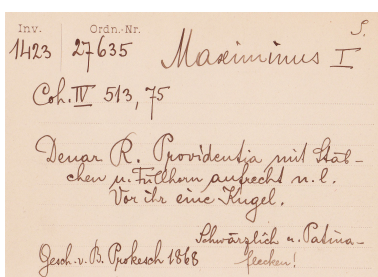 Inv. Ordn.-Nr. S.
1423 27635 Maximinus I
Coh. IV 513, 75
Denar R. Providentia mit Stäb-
chen u. Füllhorn aufrecht n. l.
Vor ihr eine Kugel.
Schwärzlich u. Patina-
Gesch. v. B. Prokesch 1868 flecken!